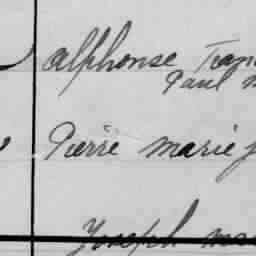 alphonse
Paul
Pierre marie
Joseph